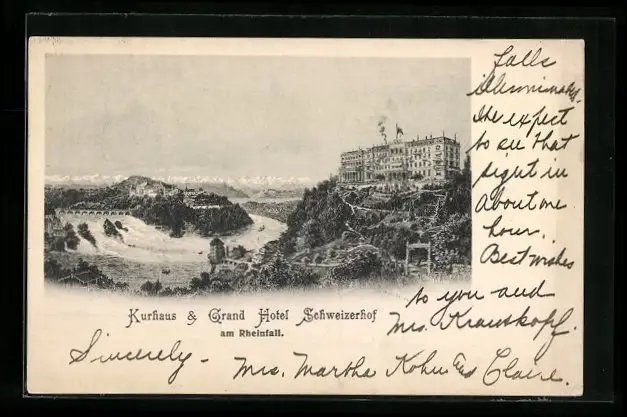 falls
illuminated.
We expect
to see that
sight in
About one
hour.
Best wishes
to you and
Mrs. Krauskopf.
Kurhaus & Grand Hotel Schweizerhof
am Rheinfall.
Sincerely -
Mrs. Martha Kohn and Claire.